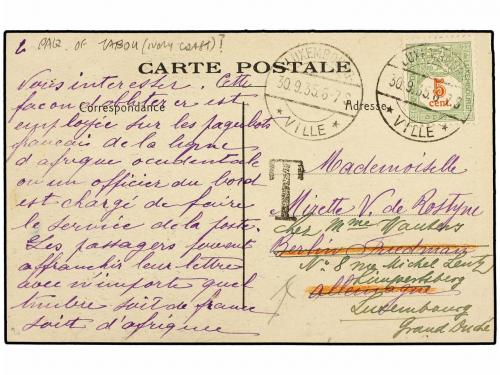 PAQ. OF TABOU (IVORY COAST)?
CARTE POSTALE
Correspondance
Adresse
LUXEMBOURG
30.9.35.6-7 S
* VILLE *
LUXEMBOURG
30.9.35.6-7 S
* VILLE *
5
cent.
T
Vous intéresser. Cette
façon d'oblitérer est
employée sur les paquebots
français de la ligne
d'afrique occidentale
ou un officier du bord
est chargé de faire
le service de la poste.
Les passagers peuvent
affranchir leur lettre
avec n'importe quel
timbre soit de france
soit d'afrique
Mademoiselle
Mizette V. de Rostyne
chez Mme Wauters
Berlin
No 8 rue Michel Lentz
Limpertsberg
Allemagne
Luxembourg
Grand Duché